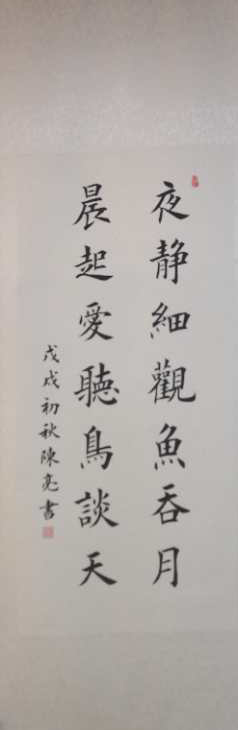 夜静細觀魚吞月
晨起愛聽鳥談天
戊戌初秋陳亮書